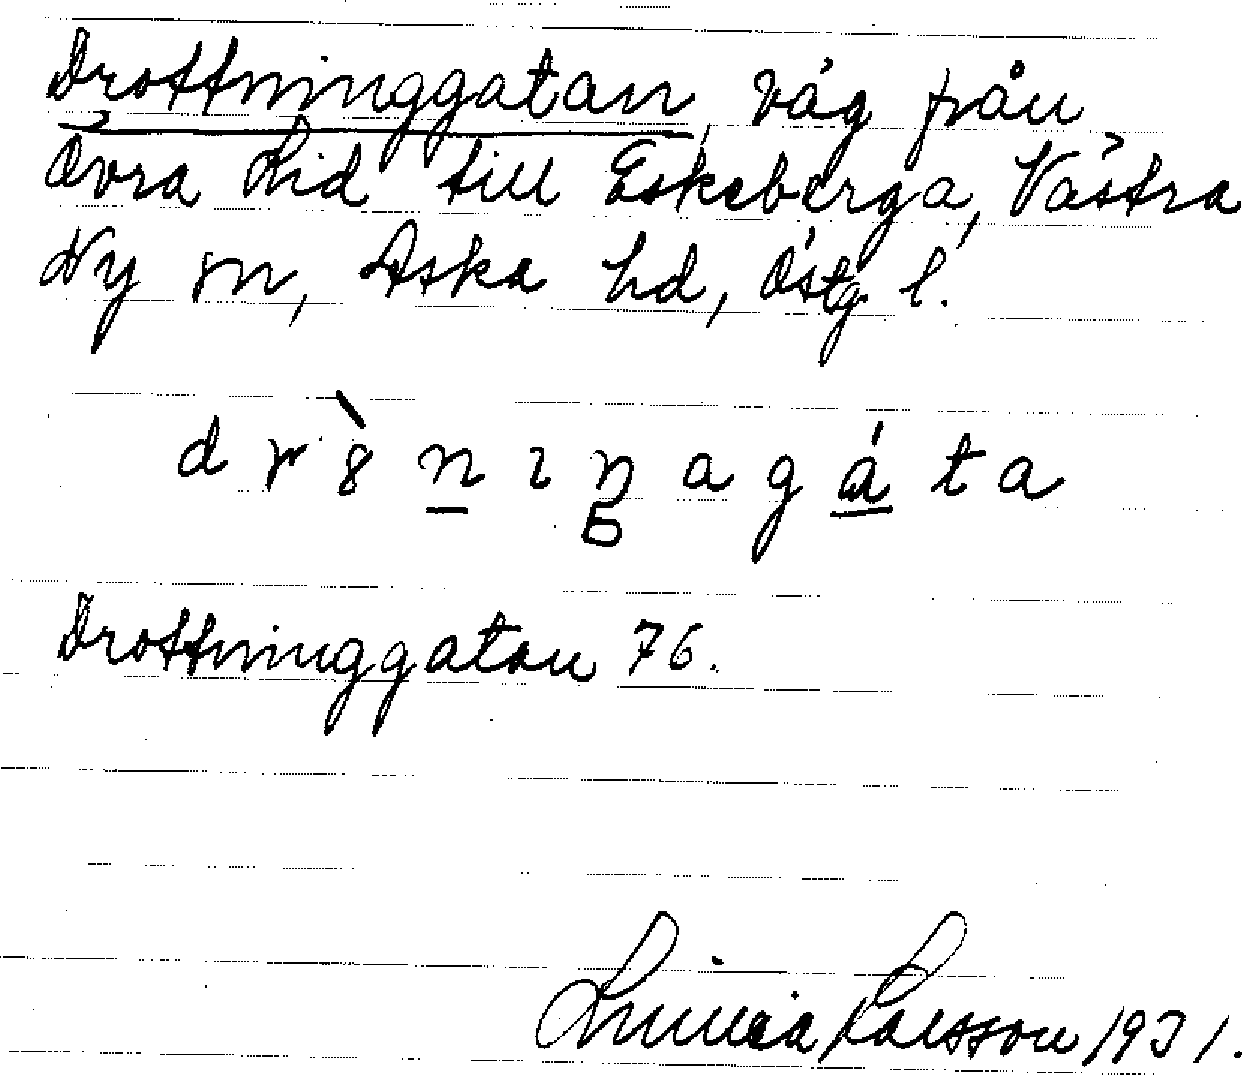 Drottninggatan, väg från
Övra Lid till Eskeberga, Västra
Ny sn, Aska hd, Östg. l.
drò̀nıŋagáta
Drottninggatan 76.
Linnea Larsson 1931.